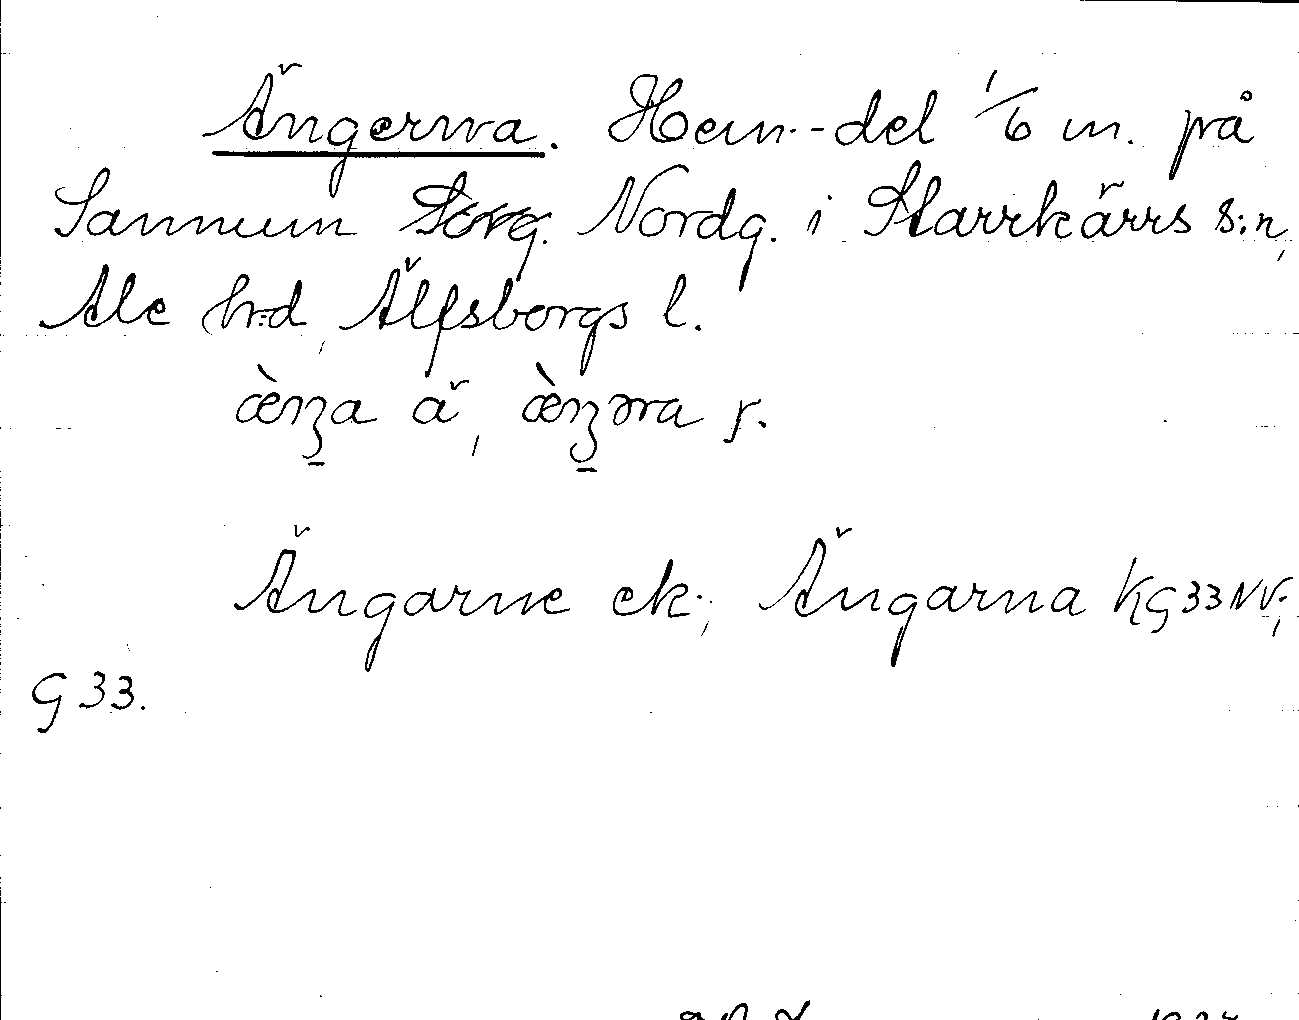 Ängerna. Hem.-del 1/6 m. på
Sannum Nordg. i Starrkärrs s:n,
Ale h:d, Älfsborgs l.
ä̀nʒa ä, ä̀nʒəra f.
Ängarne ek.; Ängarna KG33NV;
G 33.